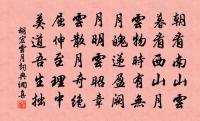 朝看南山雲
暮看西山月
雲物時有無
月魄遞盈闕
月明
雲散月奇絕
屈伸至理中
美道吾生拙
胡宏雲月詞典網